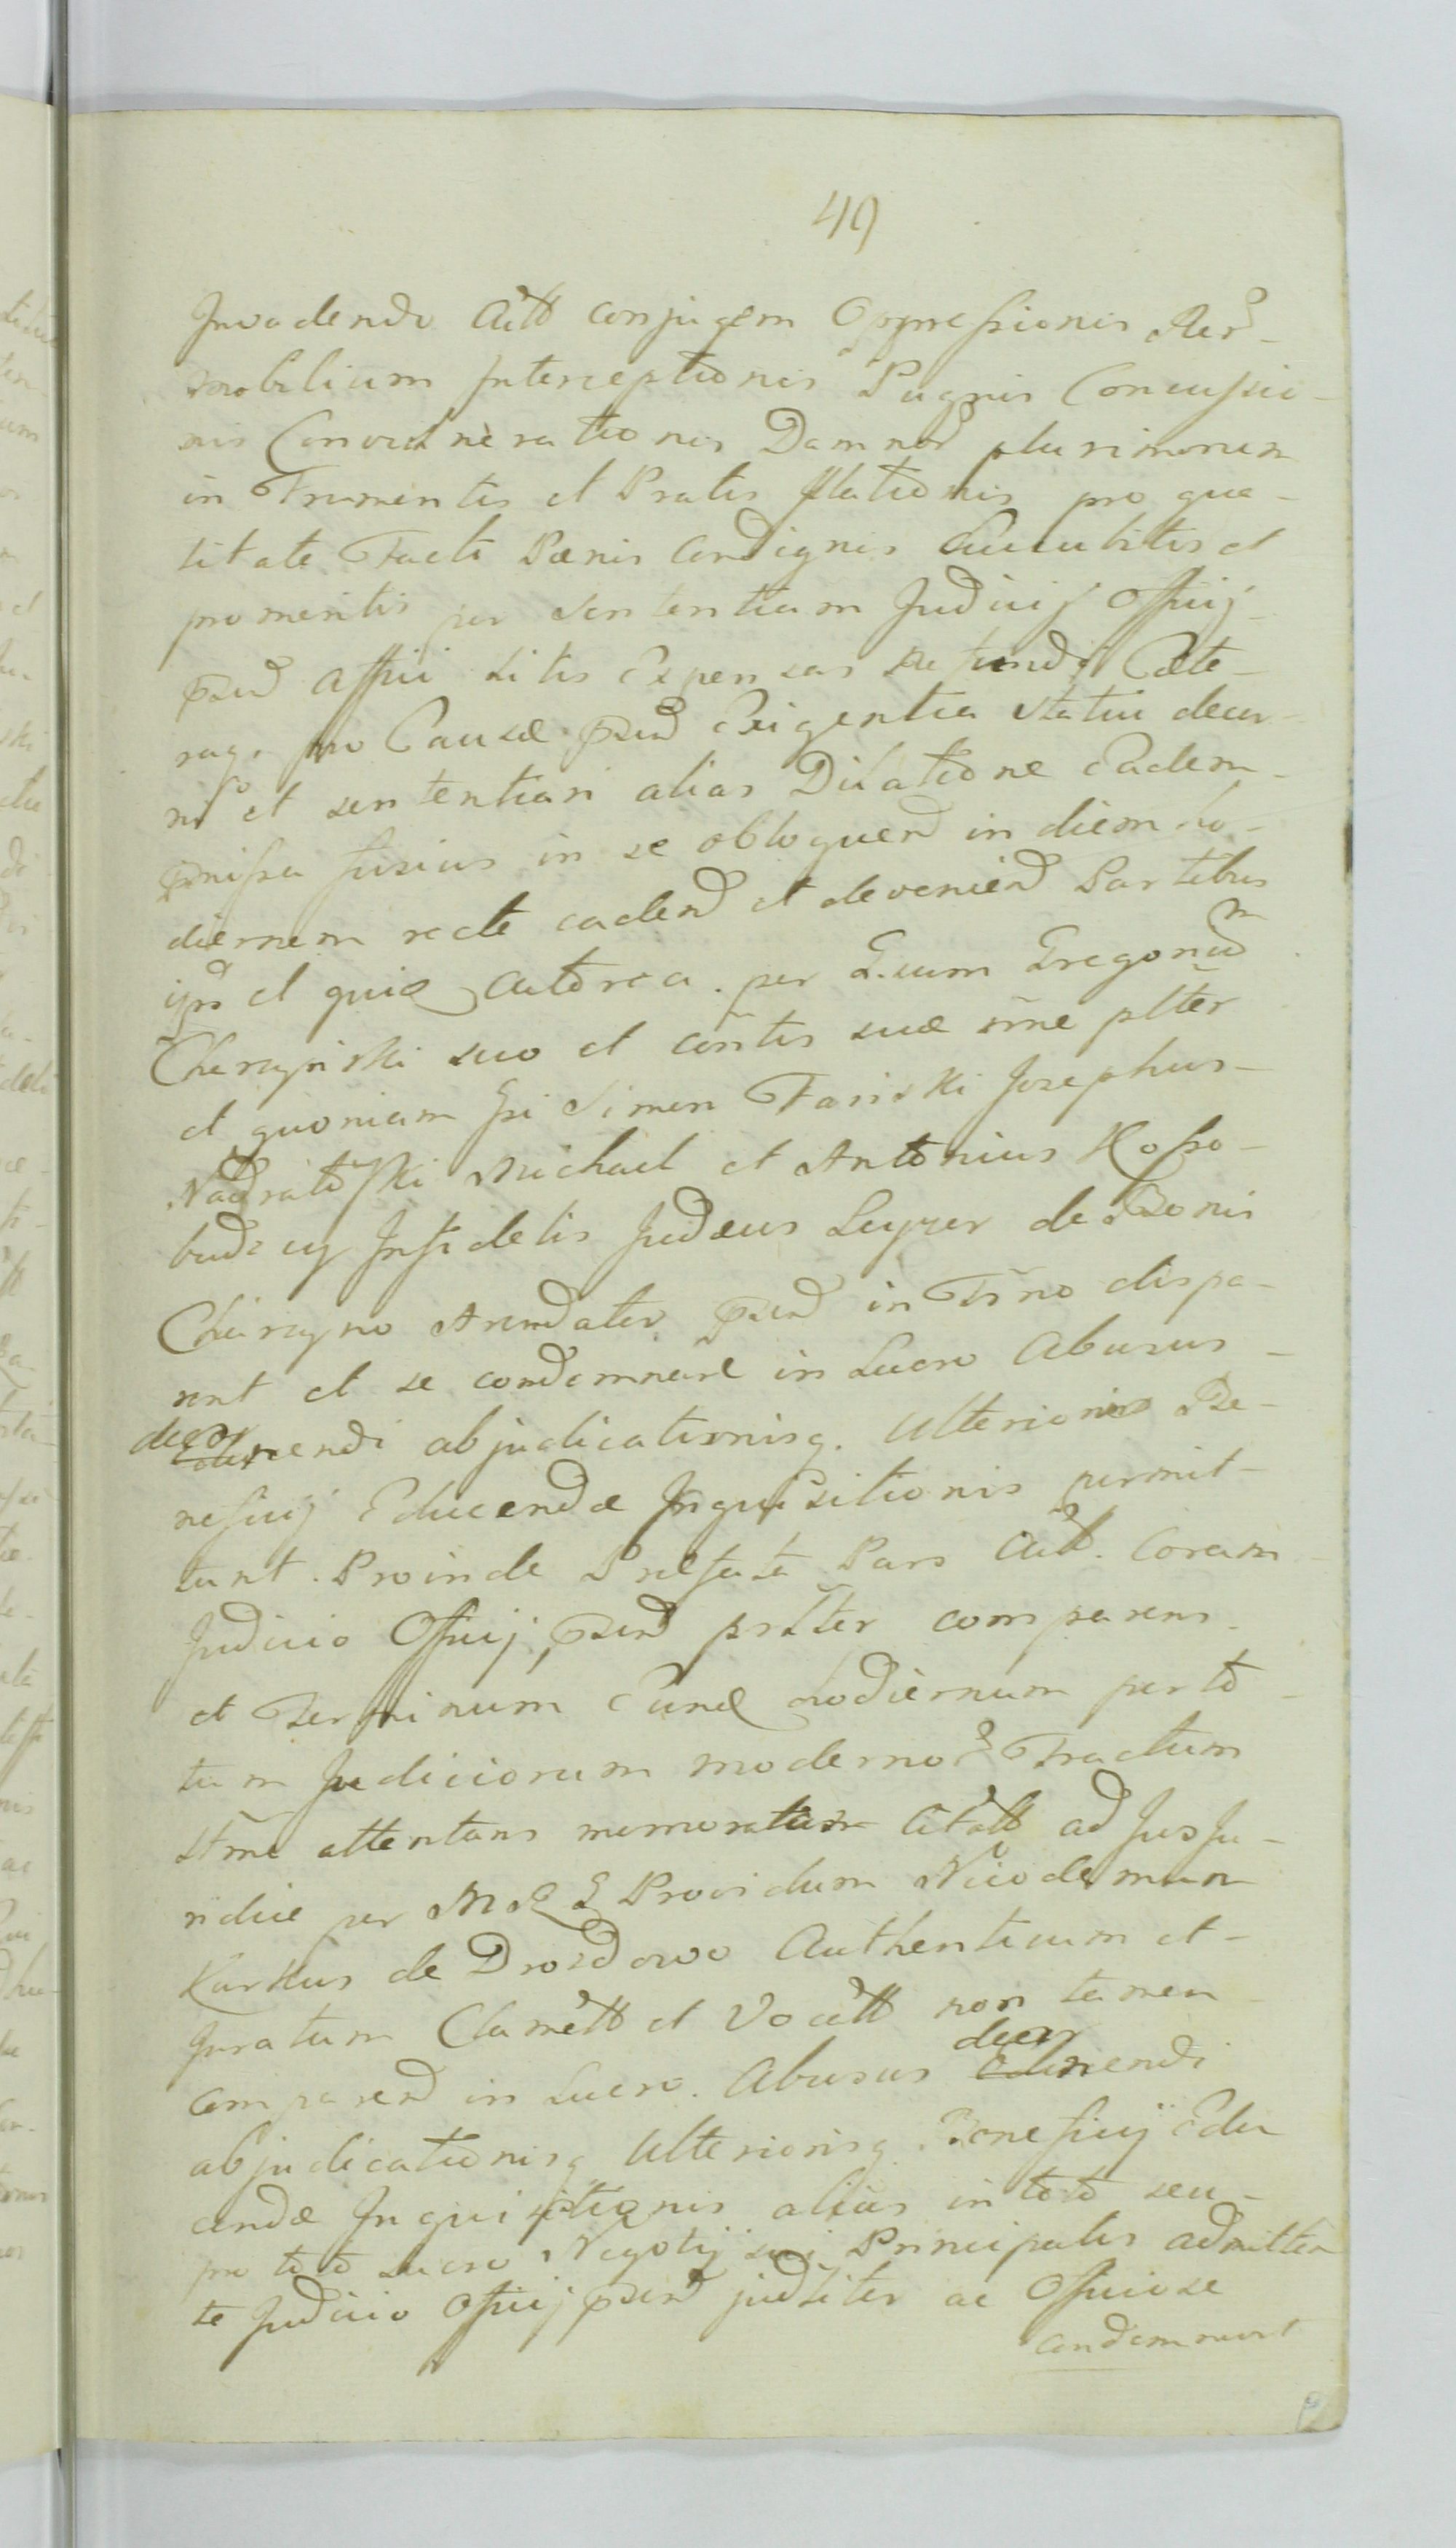 49
Invadendo Actt conjugem Oppressionis Rer
mobilium Interceptionis Pugnis Concussio-
nis Convulnerationis Damnor plurimorum
in Frumentis et Pratis Illationis pro qua-
litate Facti Pænis Condignis Luculitis et
promeritis per Sententiam Judicij Officij
psend affici Litis Expensas refundi Cæte-
raq. pro Causæ psend Exigentia Statui decer-
ni et sententiari alias Dilatione Eadem
pmissa fusius in se obloquend in diem ho-
diernem recte cadend et deveniend Partibus
ipis et quia Actorea per Gsum Gregorium
Charzynski suo et contis suæ nne plter
et quoniam Gsi Simon Fasiski Josephus
Nadratoski Michael et Antonius Kosso-
budzcy Infidelis Judæus Leyzer de Bonis
Charzyno Arendator psend in Trno dispa-
rent et se condemnare in Lucro Abusus
decernendi abjudicationisq. Ulterioris Be-
neficij Educendæ Inquisitionis permit-
tunt. Proinde Prælfata Pars Act. Coram
Judicio Officij psend prltter comparens
et Terminum Eund hodiernum per to-
tum Judiciorum modernor Tractum
sltme attentans memoratum Citatt ad Jus Ju-
ridice per M R G Providum Nicodemum
Karkus de Drozdowo Authenticum et
Juratum Clamatt et Vocatt non tamen
comparend in Lucro Abusus decernendi
abjudicationisq Ulteriorisq Beneficij Edu
cendæ Inquisitionis alias in toto seu
pro toto Lucro Negotij sui Principalis admitten
te Judicio Officij psend judtliter ac Officiose
condemnavit